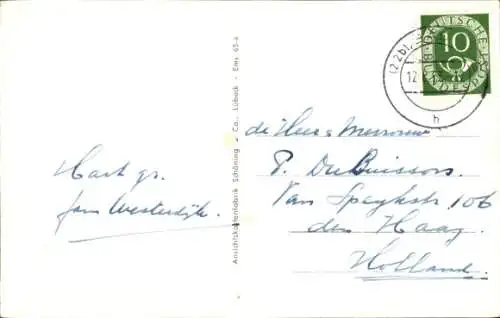 Hart. gr.
Jan Westerdijk.
Ansichtskartenfabrik Schöning & Co., Lübeck - Ems 65-a
10
DEUTSCHE
BUNDESPOST
(22b)
12
h
de Heer & Mevrouw
P. DuBuisson.
Van Speykstr 106
den Haag.
Holland.